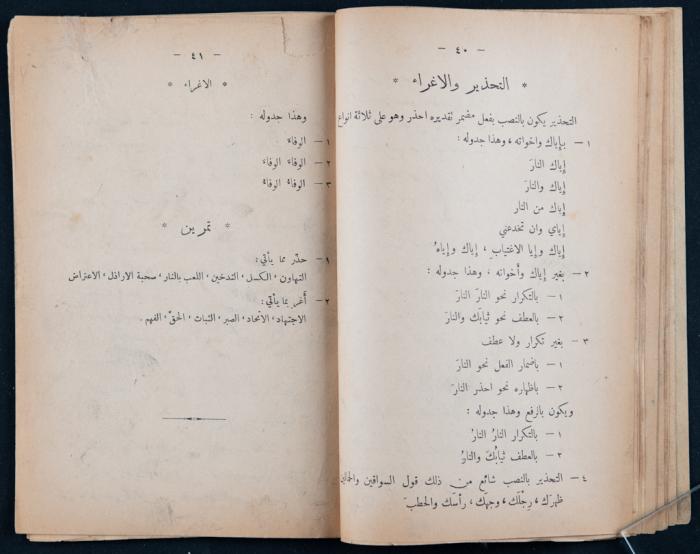 — ٤٠ —
* التحذير والاغراء *
التحذير يكون بالنصب بفعل مضمر تقديره احذر وهو على ثلاثة انواع
١ — بإياك واخواته ، وهذا جدوله :
إياك النارَ
إياك والنارَ
إياك من النار
إياي وان تخدعني
إياك وإيا الاغتياب ، إياك وإياهُ
٢ — بغير إياك وأخواته ، وهذا جدوله :
١ — بالتكرار نحو النارَ النارَ
٢ — بالعطف نحو ثيابَك والنارَ
٣ — بغير تكرار ولا عطف
١ — باضمار الفعل نحو النارَ
٢ — باظهاره نحو احذر النارَ
ويكون بالرفع وهذا جدوله :
١ — بالتكرار النارُ النارُ
٢ — بالعطف ثيابُكَ والنارُ
٤ — التحذير بالنصب شائع من ذلك قول السواقين
ظهرَك، رِجْلَك، وجهَك، رأسَك والحطبَ
— ٤١ —
* الاغراء *
وهذا جدوله :
١ — الوفاءَ
٢ — الوفاءَ الوفاءَ
٣ — الوفاءُ الوفاءُ
* تمرين *
١ — حذّر مما يأتي:
التهاون، الكسل، التدخين، اللعب بالنار، صحبة الاراذل، الاعتراض
٢ — أَغرِ بما يأتي:
الاجتهاد، الاتحاد، الصبر، الثبات، الحقّ، الفهم.